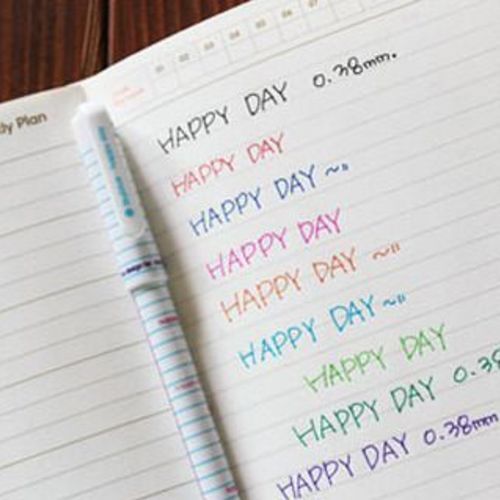 ly Plan
01 02 03 04 05 06 07
HAPPY DAY 0.38mm.
HAPPY DAY
HAPPY DAY ~"
HAPPY DAY
HAPPY DAY ~"
HAPPY DAY ~"
HAPPY DAY
HAPPY DAY 0.38
HAPPY DAY 0.38mm